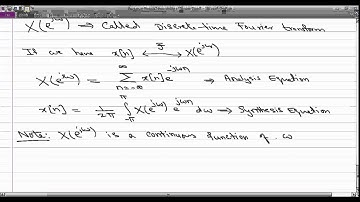 X(e^{jω}) → Called Discrete-time Fourier transform
If we have x[n] ⟷^{F} X(e^{jω})
X(e^{jω}) = ∑_{n=-∞}^{∞} x[n] e^{-jωn} → Analysis Equation
x[n] = 1/2π ∫_{-π}^{π} X(e^{jω}) e^{jωn} dω → Synthesis Equation
Note: X(e^{jω}) is a continuous function of ω